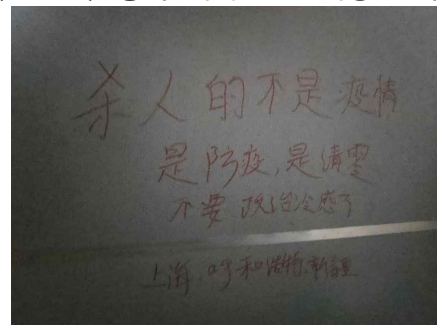 杀人的不是疫情
是防疫,是清零
不要政治冷感了
上海.呼和浩特.新疆